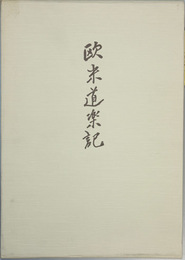 欧米道楽記